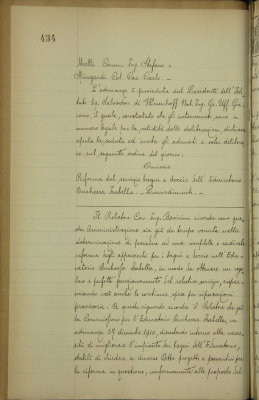 434
Melli Comm. Ing. Stefano e
Mongardi Col. Cav. Carlo. —
L'adunanza è presieduta dal Presidente dell'Isti-
tuto Sig. Salvadori di Wiesenhoff Nob. Ing. Gr. Uff. Gia-
como, il quale, constatato che gli intervenuti sono in
numero legale per la validità delle deliberazioni, dichiara
aperta la seduta ed invita gli adunati a voler delibera-
re sul seguente ordine del giorno:
Omissis
Riforma del servizio bagni e doccie dell'Educatorio
Duchessa Isabella. — Provvedimenti. —
Il Relatore Cav. Ing. ricorda come que-
sta Amministrazione sia già da tempo venuta nella
determinazione di procedere ad una completa e radicale
riforma degli apparecchi per i bagni e doccie nell'Edu-
catorio Duchessa Isabella, in modo da ottenere un rego-
lare e perfetto funzionamento del relativo servizio, rispar-
miando così anche le continue spese per riparazioni
provvisorie. A questo riguardo ricorda il Relatore che già
la Commissione per l'Educatorio Duchessa Isabella, in
adunanza 29 dicembre 1910, dovendosi addivenire alla neces-
sità di migliorare l'impianto dei bagni dell'Educatorio,
stabilì di chiedere a diverse Ditte progetti e preventivi per
la riforma in questione, conformemente alle proposte del